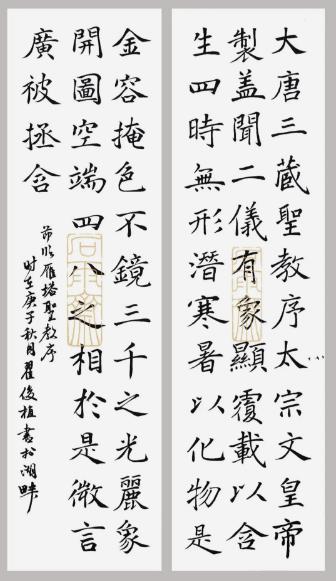 大唐三藏聖教序太宗文皇帝
製盖聞二儀有象顯覆載以含
生四時無形潛寒暑以化物是
金容掩色不鏡三千之光麗象
開圖空端四八之相於是微言
廣被拯含
節臨雁塔聖教序
時在庚子秋月翟俊植書於湖畔